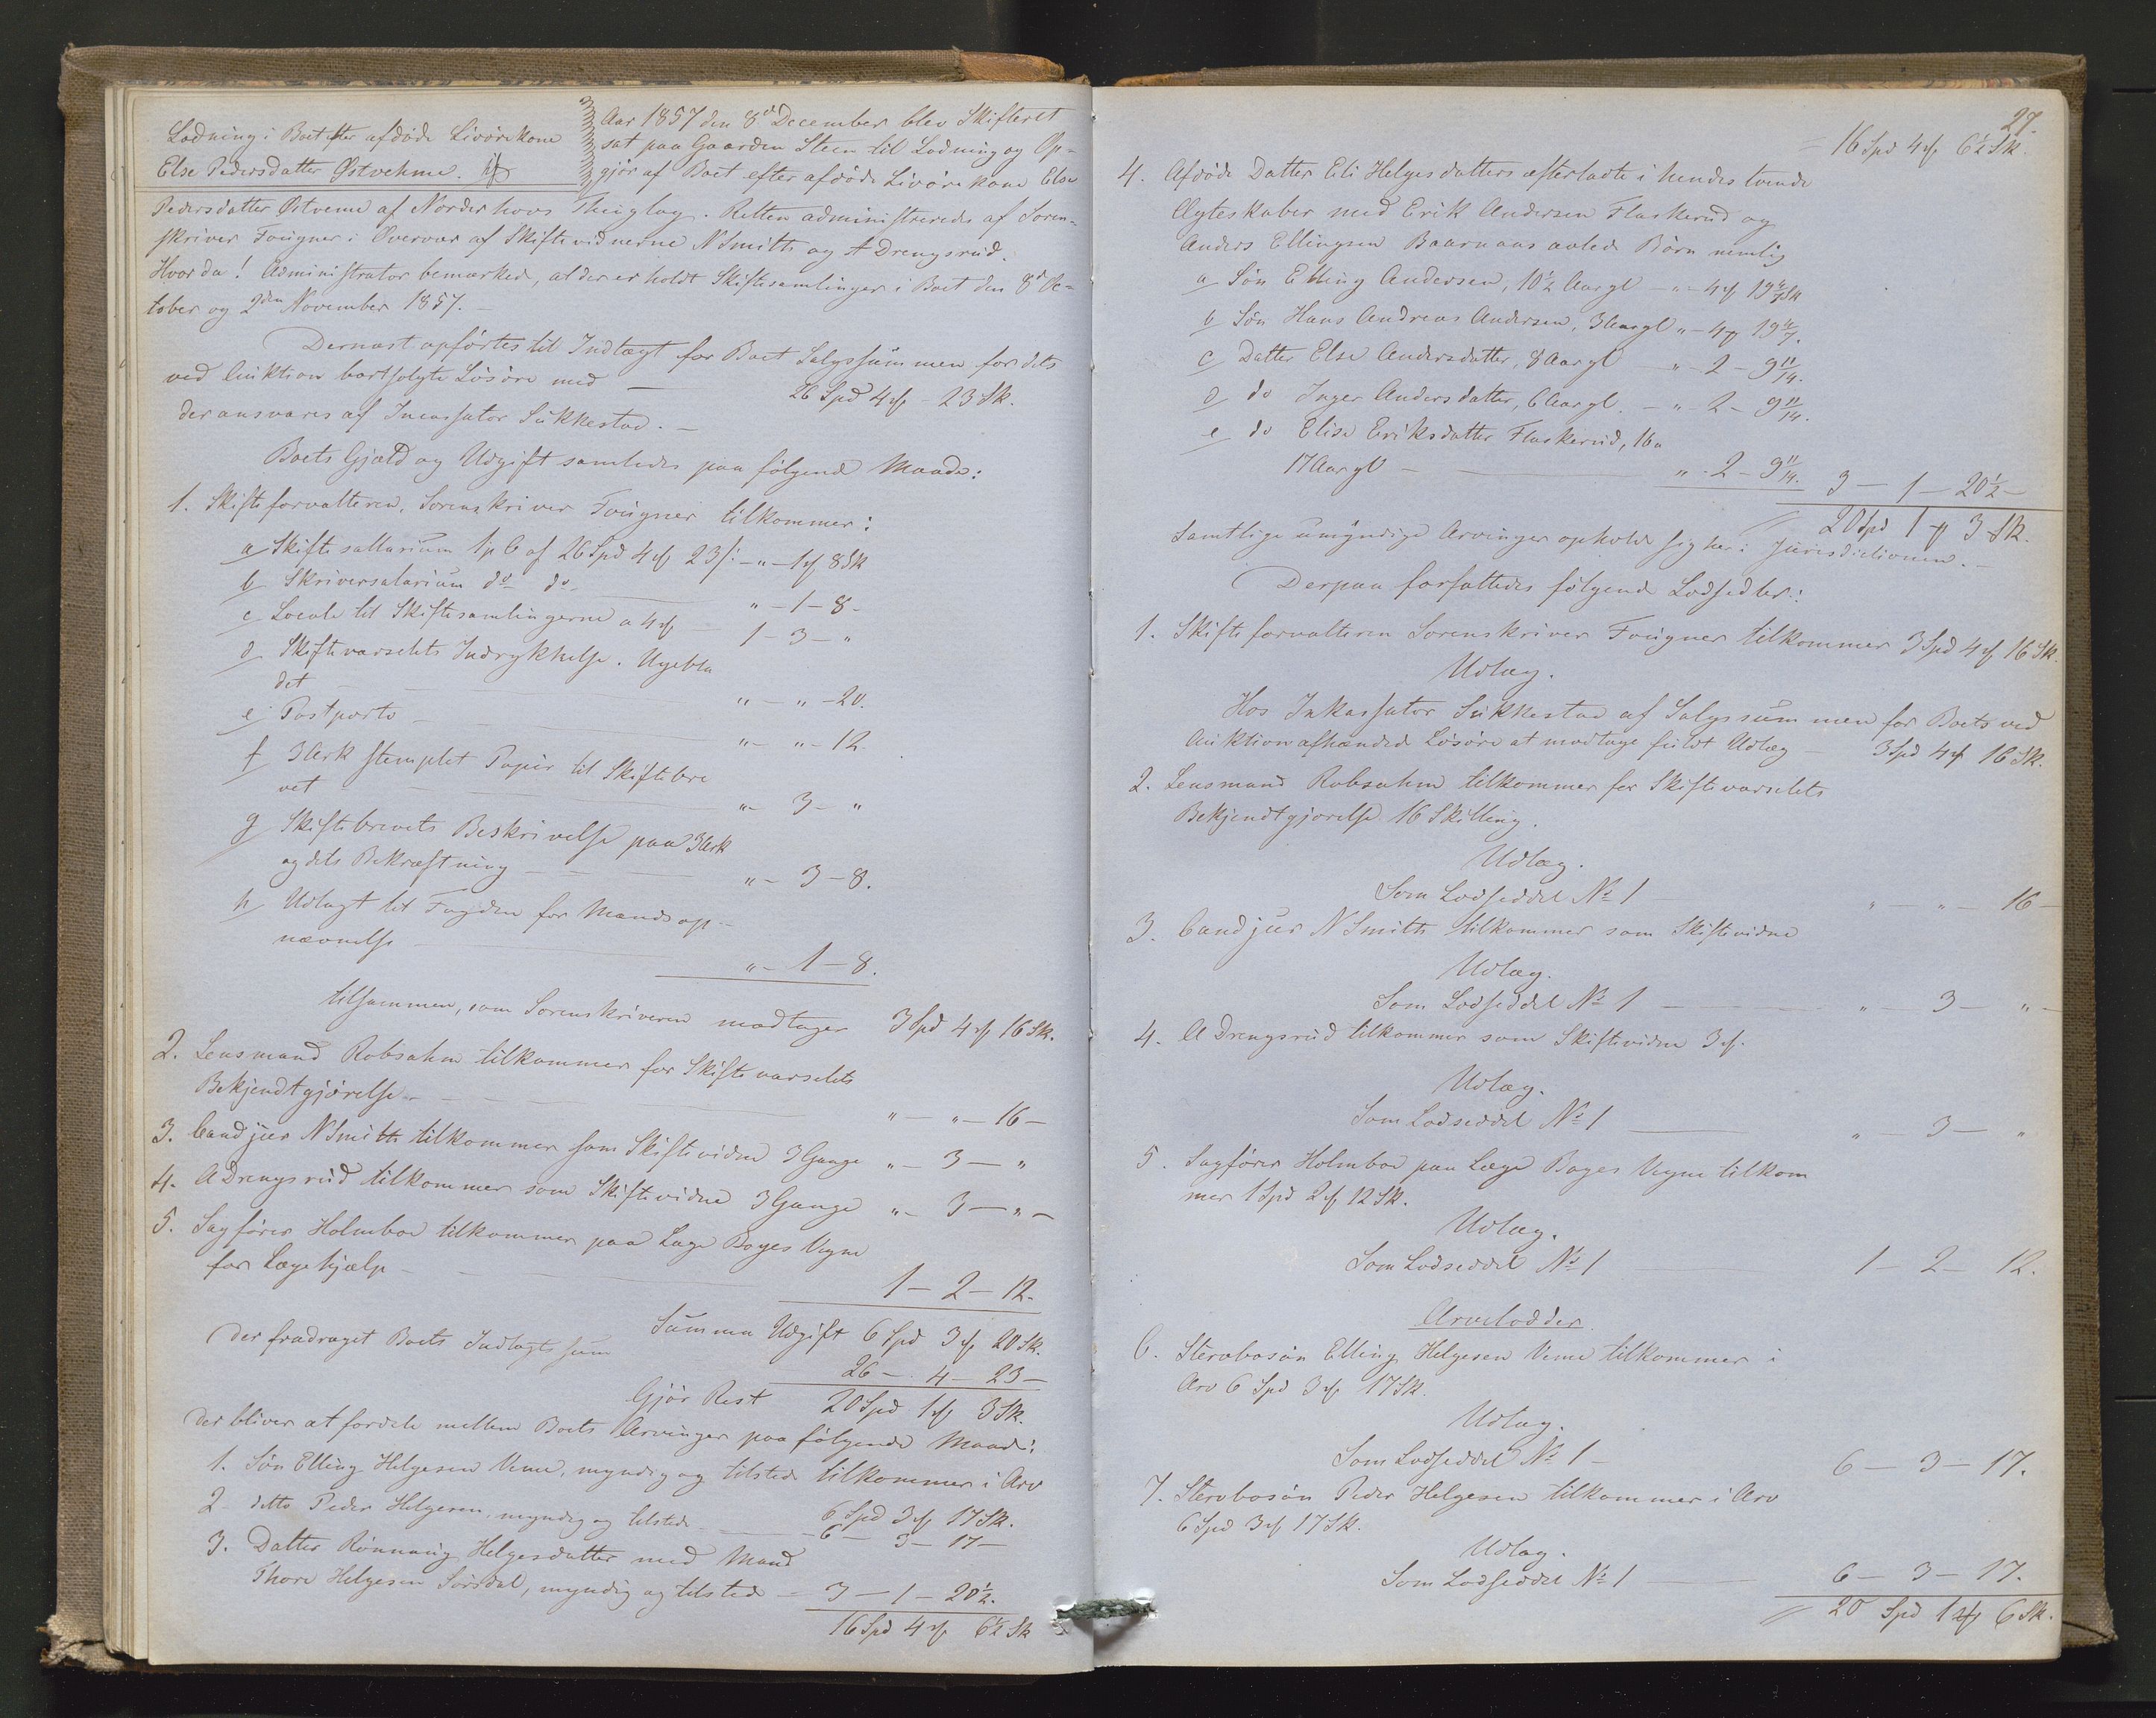 Lodning i Boet efter afdøde Livørekone
Else Pedersdatter Østvehme.
Aar 1857 den 8de December blev Skifteret
sat paa Gaarden Steen til Lodning og Op-
gjør af Boet efter afdøde Livøre kone Else
Pedersdatter Østveme af Norderhovs Thinglag. Retten administreredes af Soren-
skriver Fougner i Overvær af Skiftevidnerne N Smith og A Drengsrud.
Hvor da! Administrator bemærkede, at der er holdt Skiftesamlinger i Boet den 8de Oc-
tober og 2den November 1857. –
Dernæst opførtes til Indtægt for Boet Salgssummen for dets
ved Auktion bortsolgte Løsøre med – 26 Spd 4 ort - 23 Sk.
der ansvares af Incassator Sukkestad. –
Boets Gjæld og Udgift samledes paa følgende Maade:
1. Skifteforvalteren, Sorenskriver Fougner tilkommer:
a Skiftesallarium 1 pC af 26 Spd 4 ort 23 s: - " - 1 ort 8 Sk
b Skriversalarium do do – " - 1 - 8 -
c Locale til Skiftesamlingerne a 4 ort – 1 - 3 - "
d Skiftevarselets Indrykkelse i Ugebla
det – " - " - 20.
e Postporto – " - " - 12.
f 3 Ark stemplet Papir til Skiftebre
vet – " - 3 - "
g Skiftebrevets Beskrivelse paa 3 Ark
og dets Bekræftning – " - 3 - 8.
h Udlagt til Fogden for Mandsop-
nævnelse – " - 1 - 8.
tilsammen, som Sorenskriveren modtager 3 Spd 4 ort 16 Sk.
2. Lensmand Robsahm tilkommer for Skiftevarselets
Bekjendtgjørelse – " - " - 16 -
3. Cand jur N Smith tilkommer som Skiftevidne 3 Gange " - 3 - "
4. A Drengsrud tilkommer som Skiftevidne 3 Gange " - 3 - " -
5. Sagfører Holmboe tilkommer paa Læge Boyes Vegne
for Lægehjælp – 1 - 2 - 12.
Summa Udgift 6 Spd 3 ort 20 Sk.
Der fradraget Boets Indtægtssum 26 - 4 - 23 -
Gjør Rest 20 Spd 1 ort 3 Sk.
Der bliver at fordele mellem Boets Arvinger paa følgende Maade:
1. Søn Elling Helgesen Veme, myndig og tilstede tilkommer i Arv
6 Spd 3 ort 17 Sk.
2. ditto Peder Helgesen, myndig og tilstede – 6 - 3 - 17 -
3. Datter Rønnaug Helgesdatter med Mand
Thore Helgesen Sørsdal, myndig og tilstede – 3 - 1 - 20 1/2.
16 Spd 4 ort 6 1/2 Sk
27.
= 16 Spd 4 ort 6 1/2 Sk.
4. Afdøde Datter Eli Helgesdatters efterladte i hendes tvende
Ægteskaber med Erik Andersen Flaskerud og
Anders Ellingsen Baarnaas avlede Børn nemlig
a Søn Elling Andersen, 10 1/2 Aar gl – " - 4 ort 19 4/7 Sk
b Søn Hans Andreas Andersen, 3 Aar gl " - 4 ort 19 4/7.
c Datter Else Andersdatter, 8 Aar gl – " - 2 - 9 11/14.
d do Inger Andersdatter, 6 Aar gl. – " - 2 - 9 11/14.
e do Elise Eriksdatter Flaskerud, 16 a
17 Aar gl – " - 2 - 9 11/14. 3 - 1 - 20 1/2 -
20 Spd 1 ort 3 Sk.
Samtlige umyndige Arvinger opholde sig her i Jurisdictionen. –
Derpaa forfattedes følgende Lodsedler:
1. Skifteforvalteren Sorenskriver Fougner tilkommer 3 Spd 4 ort 16 Sk.
Udlæg.
Hos Inkassator Sukkestad af Salgssummen for Boets ved
Auktion afhændede Løsøre at modtage fuldt Udlæg – 3 Spd 4 ort 16 Sk.
2. Lensmand Robsahm tilkommer for Skiftevarselets
Bekjendtgjørelse 16 Skilling.
Udlæg.
Som Lodseddel No 1 – " - " - 16 -
3. Cand jur N Smith tilkommer som Skiftevidne
Udlæg.
Som Lodseddel No 1 – " - 3 - " -
4. A Drengsrud tilkommer som Skiftevidne 3 ort.
Udlæg.
Som Lodseddel No 1 – " - 3 - "
5. Sagfører Holmboe paa Læge Boyes Vegne tilkom
mer 1 Spd 2 ort 12 Sk.
Udlæg.
Som Lodseddel No 1 – 1 - 2 - 12.
Arvelodder
6. Stervbosøn Elling Helgesen Veme tilkommer i
Arv 6 Spd 3 ort 17 Sk.
Udlæg.
Som Lodseddel No 1 – 6 - 3 - 17.
7. Stervbosøn Peder Helgesen tilkommer i Arv
6 Spd 3 ort 17 Sk.
Udlæg.
Som Lodseddel No 1 – 6 - 3 - 17.
20 Spd 1 ort 6 Sk.